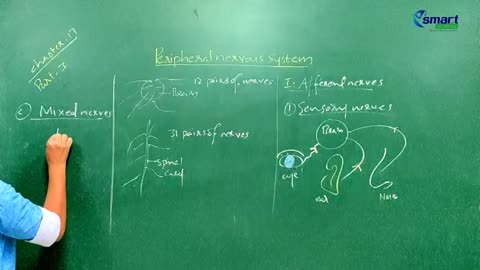 smart
Chapter-17
Part-I
Peripheral nervous system
② Mixed nerves
12 pairs of nerves
Brain
31 pairs of nerves
Spinal
Cord
I. Afferent nerves
① Sensory nerves
Brain
eye
ear
Nose